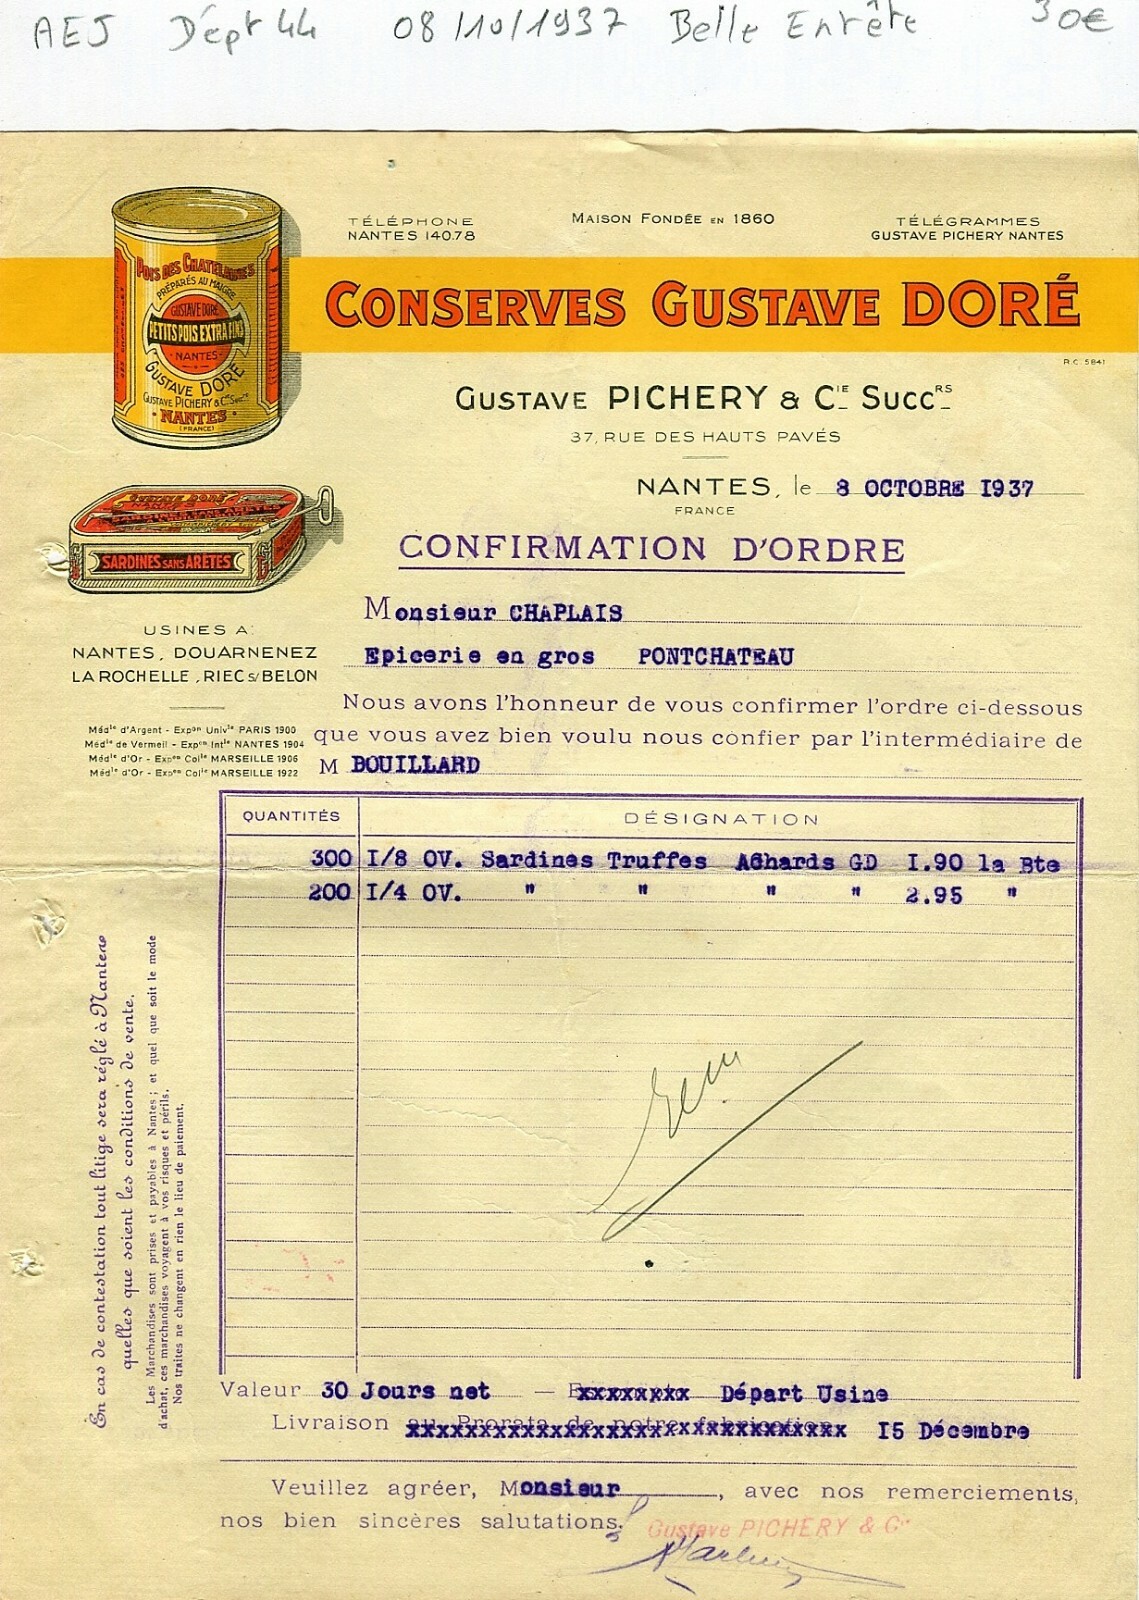 AEJ Dépt 44 08/10/1937 Belle Entête 30€
TÉLÉPHONE
NANTES 140.78
MAISON FONDÉE EN 1860
TÉLÉGRAMMES
GUSTAVE PICHERY NANTES
POIS DES CHATELAINES
PRÉPARÉS AU MAIGRE
GUSTAVE DORÉ
PETITS POIS EXTRA FINS
NANTES
GUSTAVE DORÉ
GUSTAVE PICHERY & Cie Succrs
NANTES
(FRANCE)
CONSERVES GUSTAVE DORÉ
R.C. 5841
GUSTAVE PICHERY & CIE SUCCRS
37, RUE DES HAUTS PAVÉS
NANTES, le 8 OCTOBRE 1937
FRANCE
GUSTAVE DORÉ
NANTES
SARDINES SANS ARÊTES
CONFIRMATION D'ORDRE
Monsieur CHAPLAIS
Epicerie en gros PONTCHATEAU
USINES A:
NANTES, DOUARNENEZ
LA ROCHELLE, RIEC S/BELON
Médle d'Argent - Expon Univle PARIS 1900
Médle de Vermeil - Expon Intle NANTES 1904
Médle d'Or - Expon Colle MARSEILLE 1906
Médle d'Or - Expon Colle MARSEILLE 1922
Nous avons l'honneur de vous confirmer l'ordre ci-dessous
que vous avez bien voulu nous confier par l'intermédiaire de
M BOUILLARD
QUANTITÉS DÉSIGNATION
300 I/8 OV. Sardines Truffes Achards GD 1.90 la Bte
200 I/4 OV. " " " " 2.95 "
En cas de contestation tout litige sera réglé à Nantes
quelles que soient les conditions de vente.
Les Marchandises sont prises et payables à Nantes ; et quel que soit le mode
d'achat, ces marchandises voyagent à vos risques et périls.
Nos traites ne changent en rien le lieu de paiement.
Valeur 30 Jours net — xxxxxxxx Départ Usine
Livraison au Prorata de notre fabrication 15 Décembre
Veuillez agréer, Monsieur, avec nos remerciements,
nos bien sincères salutations.
Gustave PICHERY & Cie